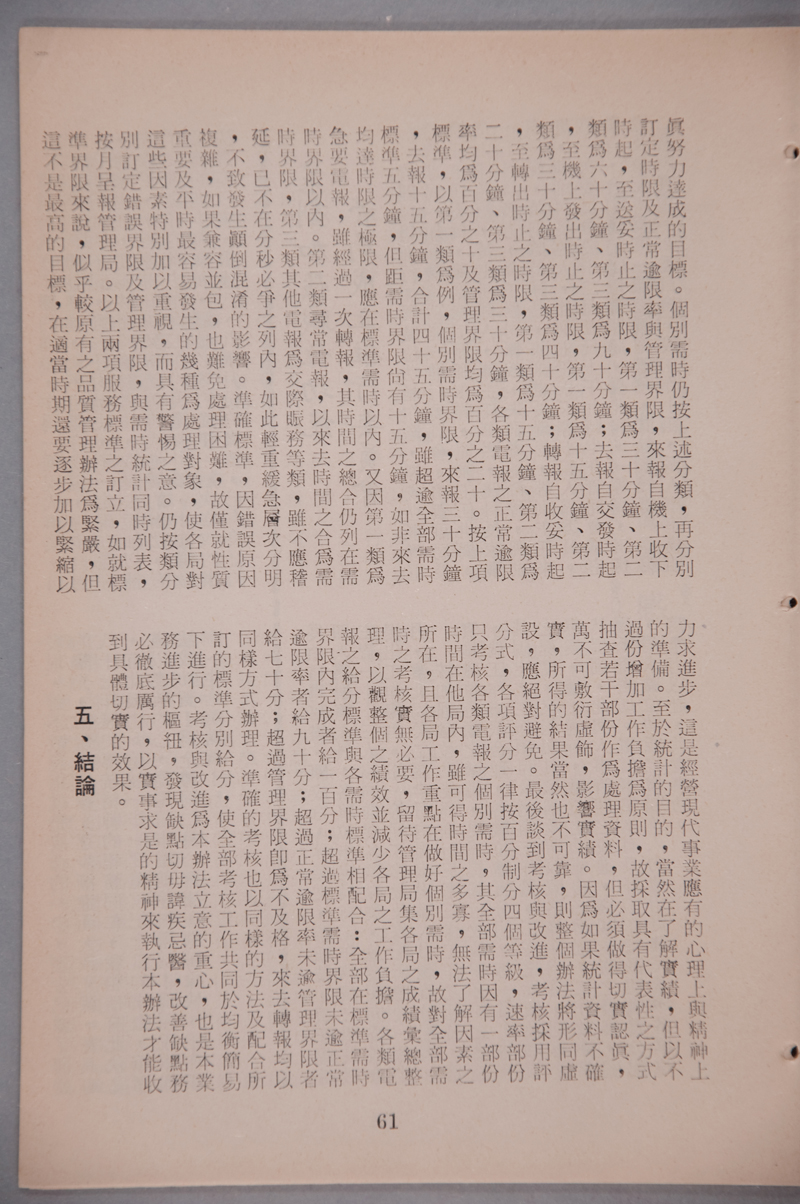 眞努力達成的目標。個別需時仍按上述分類，再分別
訂定時限及正常逾限率與管理界限，來報自機上收下
時起，至送妥時止之時限，第一類爲三十分鐘、第二
類爲六十分鐘、第三類爲九十分鐘；去報自交發時起
，至機上發出時止之時限，第一類爲十五分鐘、第二
類爲三十分鐘、第三類爲四十分鐘；轉報自收妥時起
，至轉出時止之時限，第一類爲十五分鐘、第二類爲
二十分鐘、第三類爲三十分鐘，各類電報之正常逾限
率均爲百分之十及管理界限均爲百分之二十。按上項
標準，以第一類爲例，個別需時界限，來報三十分鐘
，去報十五分鐘，合計四十五分鐘，雖超逾全部需時
標準五分鐘，但距需時界限尙有十五分鐘，如非來去
均達時限之極限，應在標準需時以內。又因第一類爲
急要電報，雖經過一次轉報，其時間之總合仍列在需
時界限以內。第二類尋常電報，以來去時間之合爲需
時界限，第三類其他電報爲交際賬務等類，雖不應稽
延，已不在分秒必爭之列內，如此輕重緩急層次分明
，不致發生顚倒混淆的影響。準確標準，因錯誤原因
複雜，如果兼容並包，也難免處理困難，故僅就性質
重要及平時最容易發生的幾種爲處理對象，使各局對
這些因素特別加以重視，而具有警惕之意。仍按類分
別訂定錯誤界限及管理界限，與需時統計同時列表，
按月呈報管理局。以上兩項服務標準之訂立，如就標
準界限來說，似乎較原有之品質管理辦法爲緊嚴，但
這不是最高的目標，在適當時期還要逐步加以緊縮以
力求進步，這是經營現代事業應有的心理上與精神上
的準備。至於統計的目的，當然在了解實績，但以不
過份增加工作負擔爲原則，故採取具有代表性之方式
抽查若干部份作爲處理資料，但必須做得切實認眞，
萬不可敷衍虛飾，影響實績。因爲如果統計資料不確
實，所得的結果當然也不可靠，則整個辦法將形同虛
設，應絕對避免。最後談到考核與改進，考核採用評
分式，各項評分一律按百分制分四個等級，速率部份
只考核各類電報之個別需時，其全部需時因有一部份
時間在他局內，雖可得時間之多寡，無法了解因素之
所在，且各局工作重點在做好個別需時，故對全部需
時之考核實無必要，留待管理局集各局之成績彙總整
理，以觀整個之績效並減少各局之工作負擔。各類電
報之給分標準與各需時標準相配合：全部在標準需時
界限內完成者給一百分；超過標準需時界限未逾正常
逾限率者給九十分；超過正常逾限率未逾管理界限者
給七十分；超過管理界限卽爲不及格，來去轉報均以
同樣方式辦理。準確的考核也以同樣的方法及配合所
訂的標準分別給分，使全部考核工作共同於均衡簡易
下進行。考核與改進爲本辦法立意的重心，也是本業
務進步的樞紐，發現缺點切毋諱疾忌醫，改善缺點務
必徹底厲行，以實事求是的精神來執行本辦法才能收
到具體切實的效果。
五、結論
61